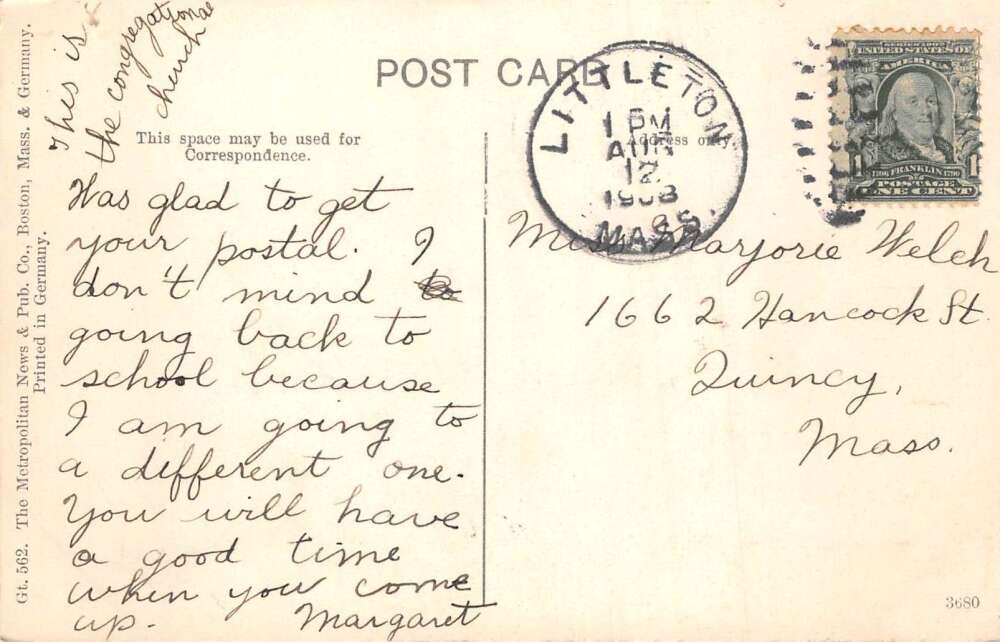 This is
the congregational
church
POST CARD
This space may be used for
Correspondence.
Address only.
LITTLETON
1 PM
AUG
12
1908
MASS.
SERIES 1902
UNITED STATES OF
AMERICA
1706 FRANKLIN 1790
POSTAGE
1 ONE CENT 1
Was glad to get
your postal. I
don't mind
going back to
school because
I am going to
a different one.
You will have
a good time
when you come
up. Margaret
Miss Marjorie Welch
1662 Hancock St.
Quincy,
Mass.
Gt. 562. The Metropolitan News & Pub. Co., Boston, Mass. & Germany.
Printed in Germany.
3680